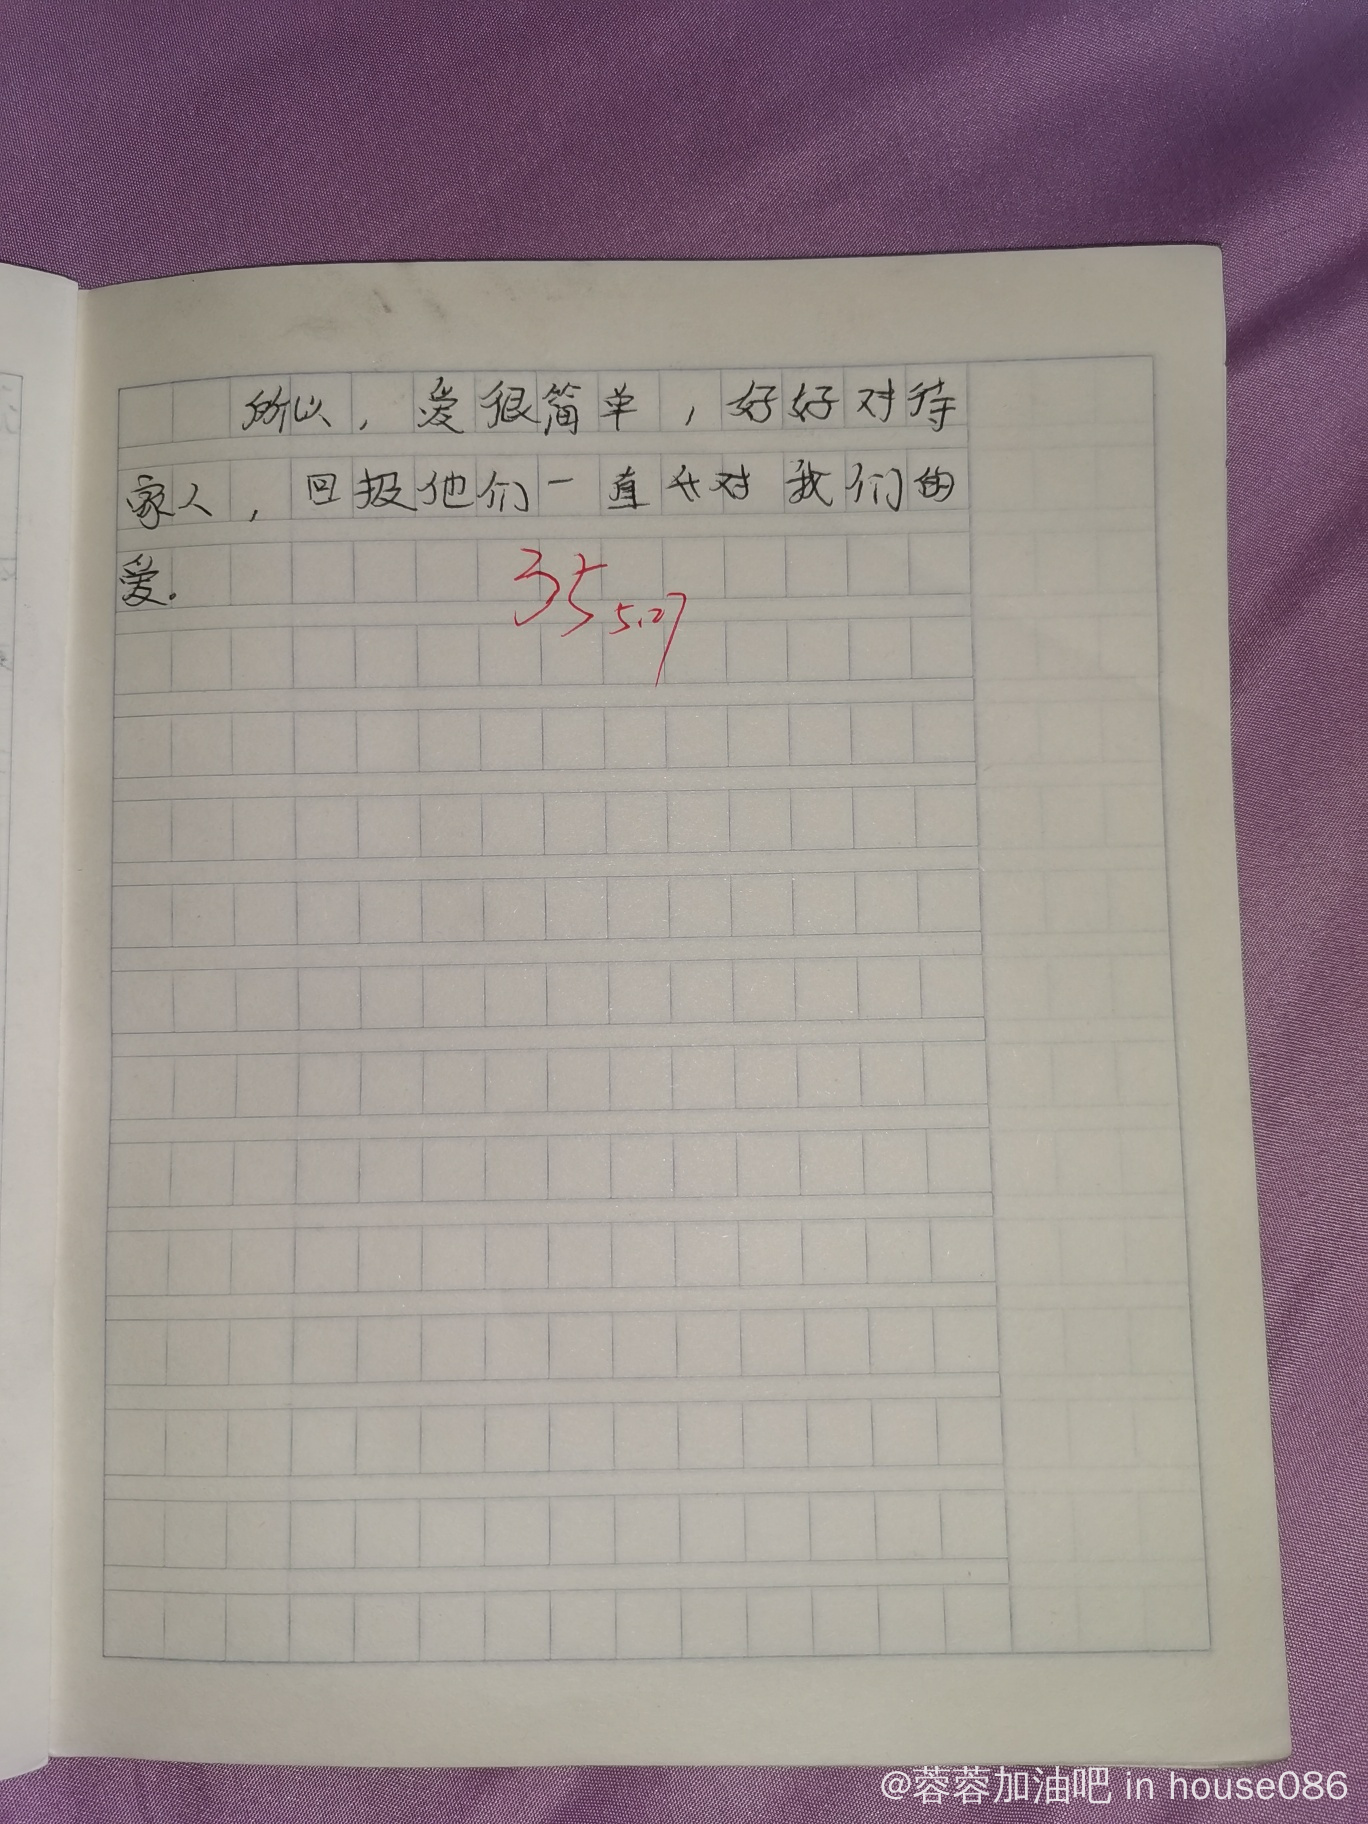 所以，爱很简单，好好对待
家人，回报他们一直以对我们的
爱.
35 5.27
@蓉蓉加油吧 in house086